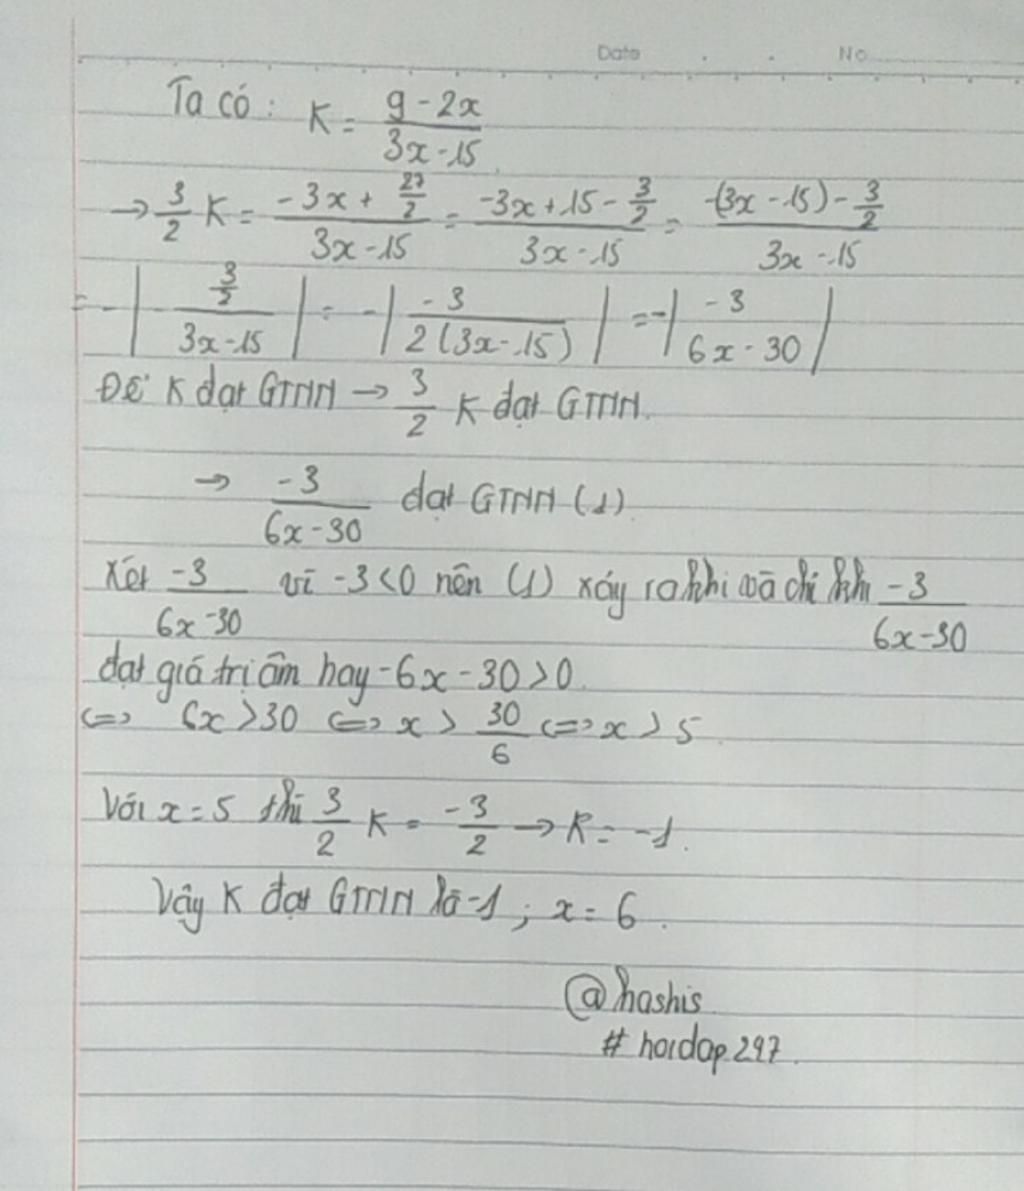 Date No
Ta có: K = \frac{9-2x}{3x-15}
→ \frac{3}{2} K = \frac{-3x+\frac{27}{2}}{3x-15} = \frac{-3x+15-\frac{3}{2}}{3x-15} = \frac{-(3x-15)-\frac{3}{2}}{3x-15}
= -\left|-\frac{\frac{3}{2}}{3x-15}\right| = -\left|\frac{-3}{2(3x-15)}\right| = -\left|\frac{-3}{6x-30}\right|
Để K đạt GTNN → \frac{3}{2} K đạt GTNN.
→ \frac{-3}{6x-30} đạt GTNN (1)
Xét \frac{-3}{6x-30} vì -3<0 nên (1) xảy ra khi và chỉ khi \frac{-3}{6x-30}
đạt giá trị âm hay -6x-30>0
<=> 6x>30 <=> x > \frac{30}{6} <=> x > 5
Với x=5 thì \frac{3}{2} K = \frac{-3}{2} → K = -1.
Vậy K đạt GTNN là -1; x = 6.
@hashis
#hoidap247